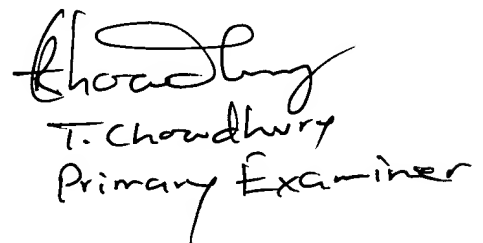 Tchoadhury
T. Chowdhury
Primary Examiner